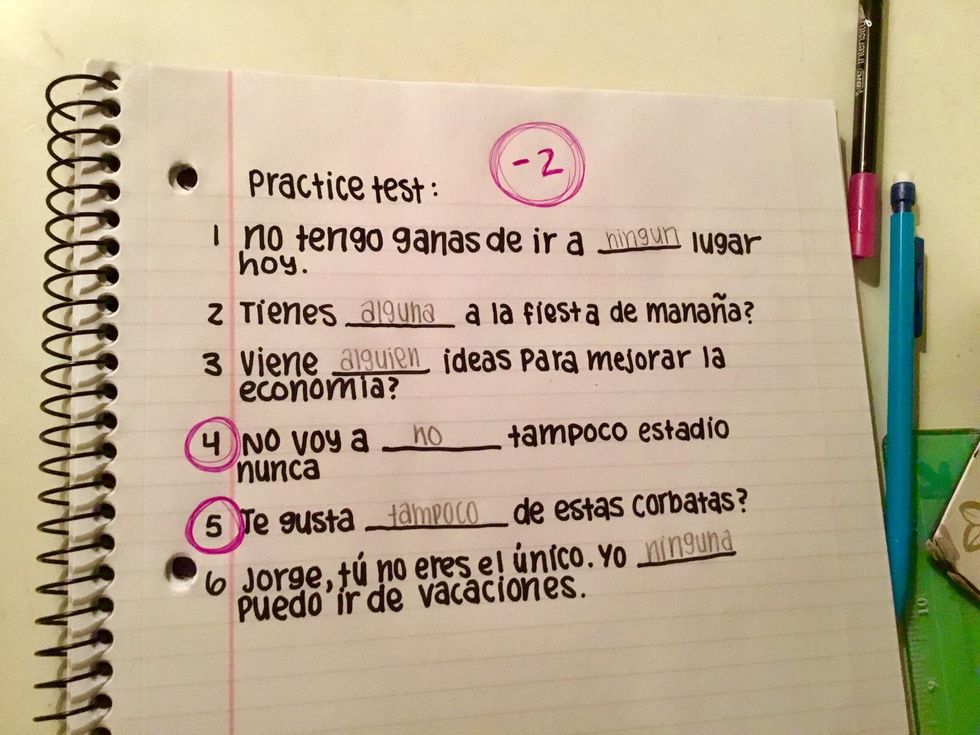 -2
Practice test:
1 no tengo ganas de ir a ningun lugar
hoy.
2 Tienes alguna a la fiesta de manaña?
3 Viene alguien ideas para mejorar la
economia?
4 No voy a no tampoco estadio
nunca
5 Te gusta tampoco de estas corbatas?
6 Jorge, tú no eres el único. Yo ninguna
puedo ir de vacaciones.
BIC intensity
10
9